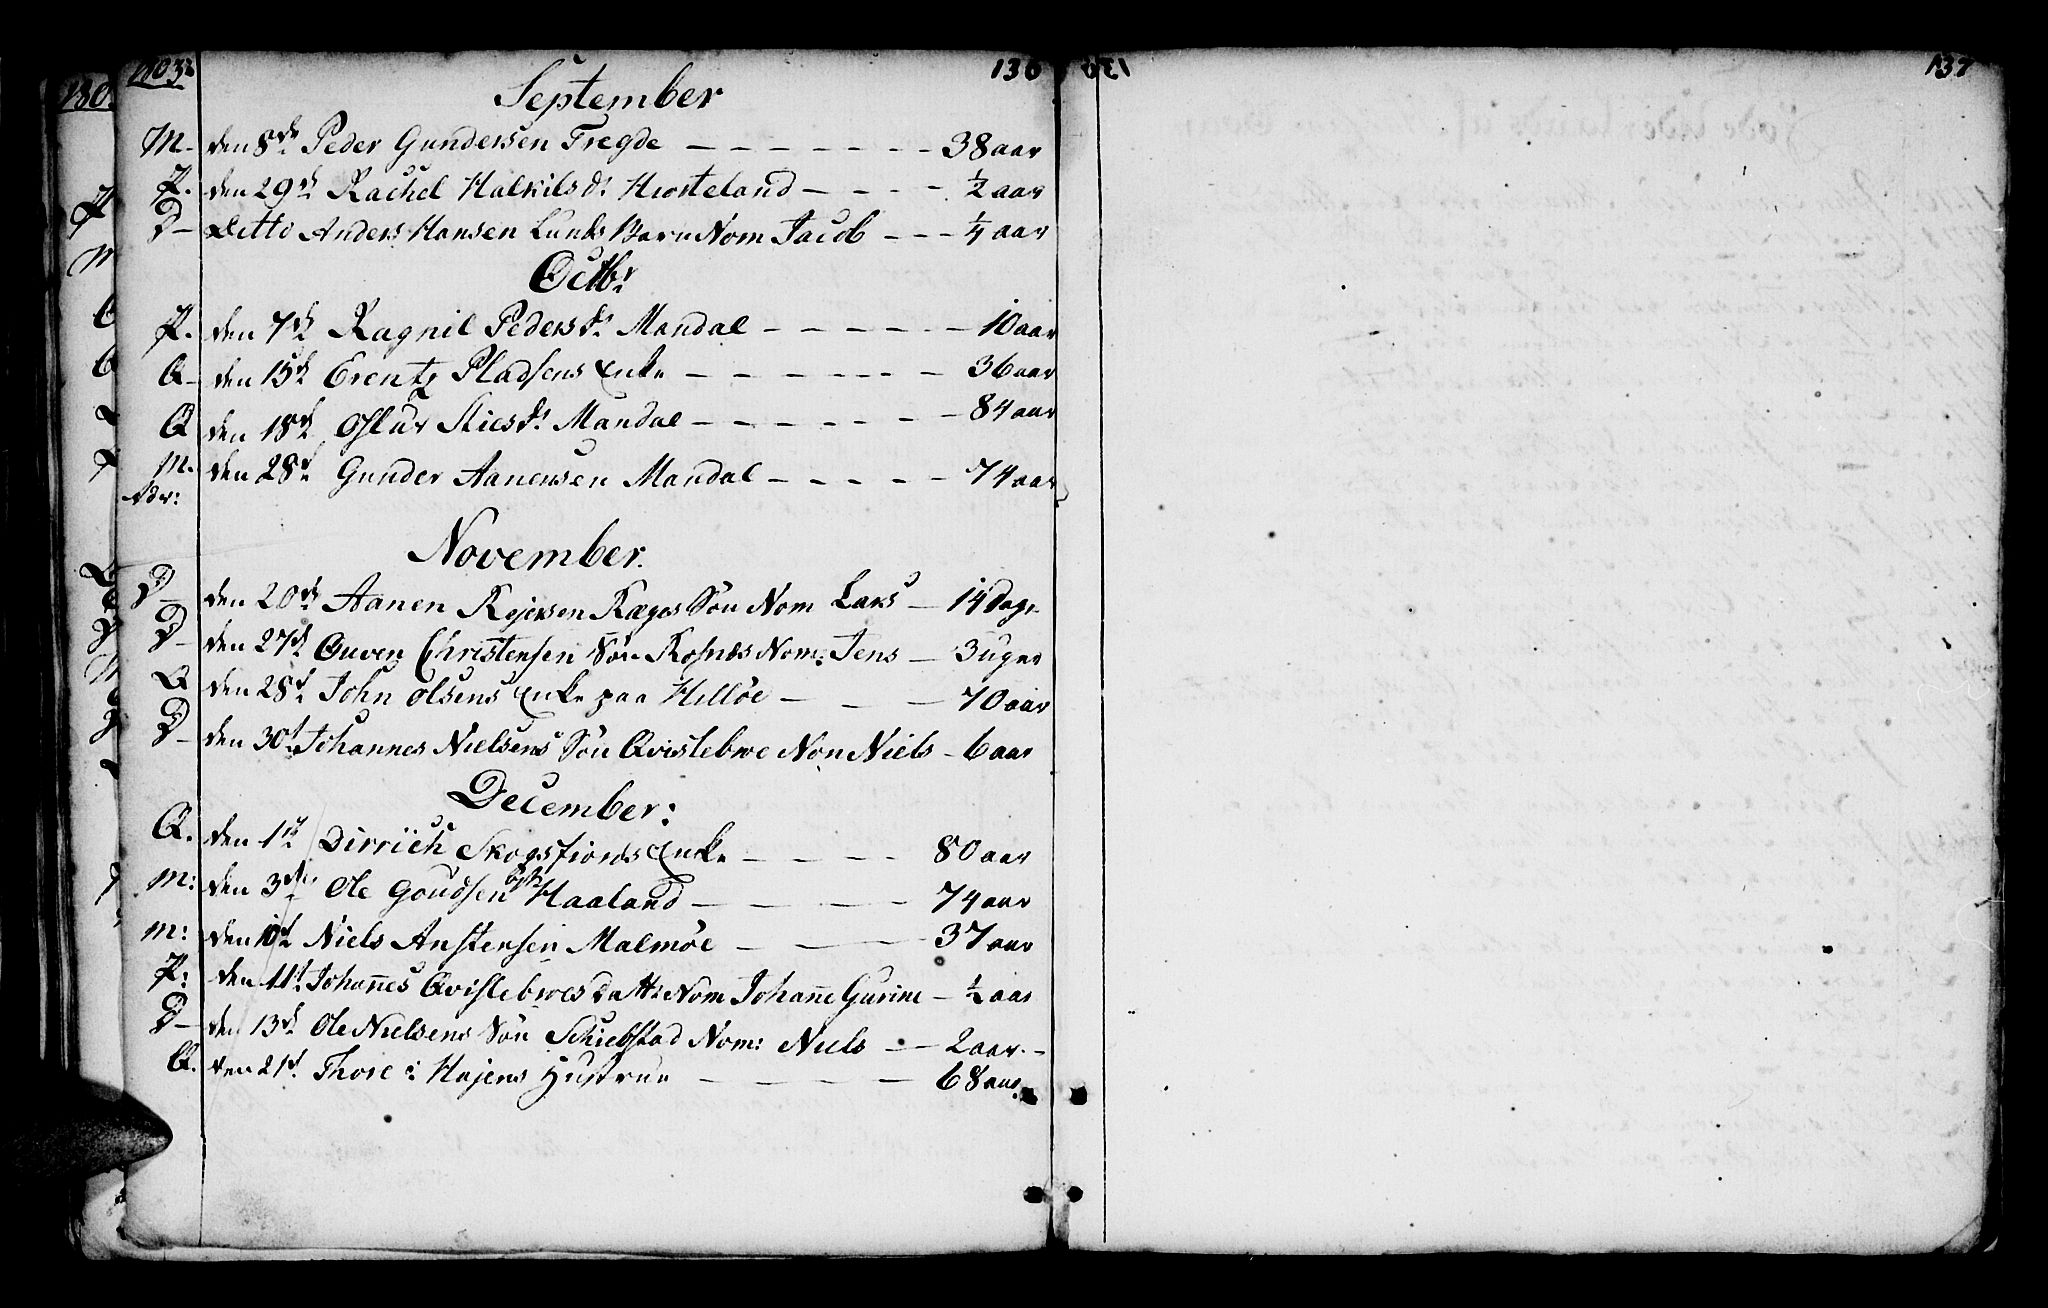 1803
136
September
M. den 8de Peder Gundersen Fregde 38 aar
P. den 29de Rachel Halkilsdr Hiorteland ½ aar
D Ditto Anders Hansen Lunds Barn Nom Jacob ¼ aar
Octbr
P. den 7de Ragnil Pedersdr Mandal 10 aar
Q den 15de Erentz Pladsens Enke 36 aar
Q den 18de Siiesdr Mandal 84 aar
M. den 28de Gunder Aanensen Mandal 74 aar
November.
D den 20de Aanen Rejersen Søn Nom Lars 14 Dage
D den 27de Ouven Christensen Søn Rosnæs Nom: Jens 3 uger
Q den 28de John Olsens Enke paa Hilløe 70 aar
D den 30te Johannes Nielsens Søn Qvislebroe Nom Niels 6 aar
December:
Q. den 1ste Dirrich Skogsfiords Enke 80 aar
M: den 3de Ole Goudsen Haaland 74 aar
M: den 10de Niels Anstensen Malmøe 37 aar
P: den 11te Johañes Qvislebroes datter Nom Johañe Gurine ½ aar
D den 13de Ole Nielsens Søn Schiebstad Nom: Niels 2 aar.
Q. den 21de Thore Hustrue 68 aar
137